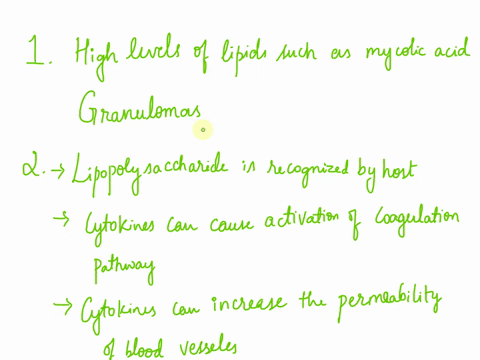 1. High levels of lipids such as mycolic acid
Granulomas
2. → Lipopolysaccharide is recognized by host
→ Cytokines can cause activation of coagulation
pathway
→ Cytokines can increase the permeability
of blood vesseles